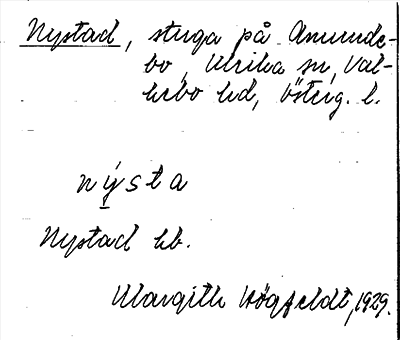 Nystad, stuga på Amunde-
bo, Ulrika sn, Val-
kebo hd, Östrg. l.
nýsta
Nystad kb.
Margith Högfeldt, 1929.